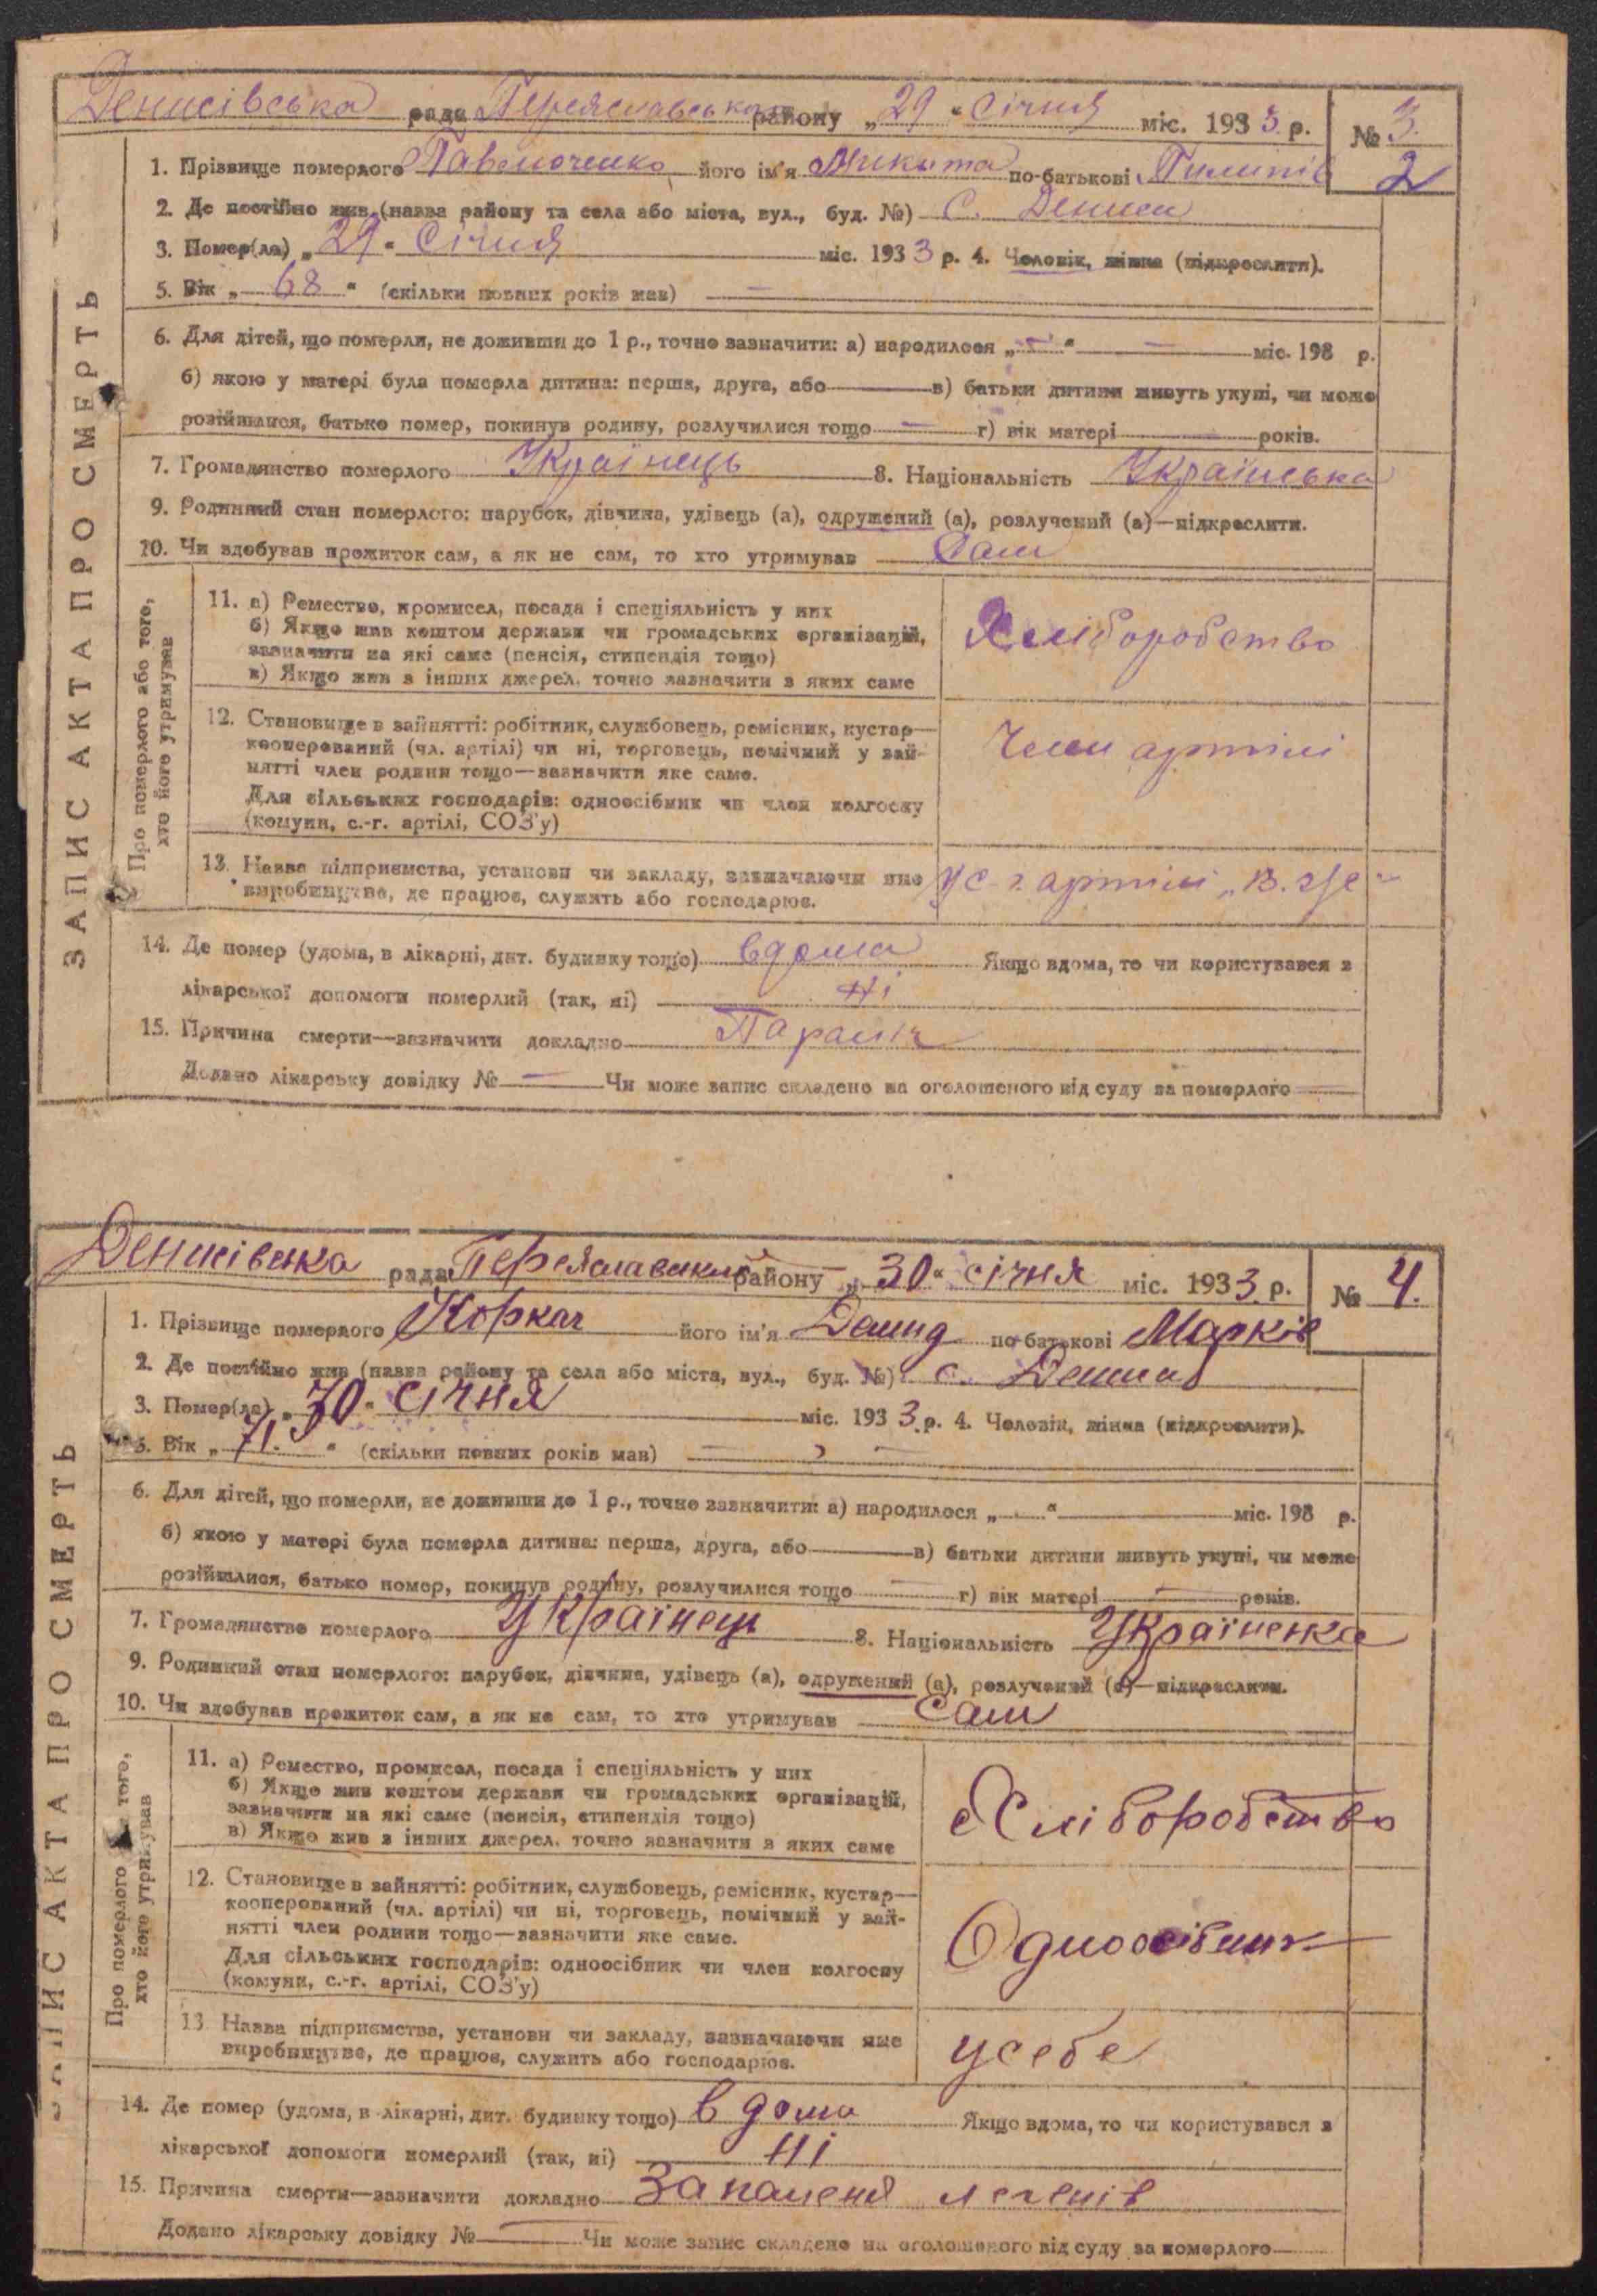 Денисівська рада Переяславського району „29“ Січня міс. 1933 р. № 3.
2
1. Прізвище померлого його ім'я Микита по-батькові Пилипів
2. Де постійно жив (назва району та села або міста, вул., буд. №) С. Дениси
3. Помер(ла) „29“ Січня міс. 1933 р. 4. Чоловік, жінка (підкреслити).
5. Вік „68“ (скільки повних років мав) —
6. Для дітей, що померли, не доживши до 1 р., точно зазначити: а) народилося „—“ — міс. 193 р.
б) якою у матері була померла дитина: перша, друга, або — в) батьки дитини живуть укупі, чи може
розійшлися, батько помер, покинув родину, розлучилися тощо — г) вік матері — років.
7. Громадянство померлого Українець 8. Національність Українська
9. Родинний стан померлого: парубок, дівчина, удівець (а), одружений (а), розлучений (а)—підкреслити.
10. Чи здобував прожиток сам, а як не сам, то хто утримував Сам
ЗАПИС АКТА ПРО СМЕРТЬ
Про померлого або того,
хто його утримував
11. а) Ремество, промисел, посада і спеціяльність у них
б) Якщо жив коштом держави чи громадських організацій,
зазначити на які саме (пенсія, стипендія тощо)
в) Якщо жив з інших джерел, точно зазначити з яких саме
Хліборобство
12. Становище в зайнятті: робітник, службовець, ремісник, кустар—
кооперований (чл. артілі) чи ні, торговець, помічний у зай-
нятті член родини тощо—зазначити яке саме.
Для сільських господарів: одноосібник чи член колгоспу
(комуни, с.-г. артілі, СОЗ'у)
Член артілі
13. Назва підприємства, установи чи закладу, зазначаючи яке
виробництво, де працює, служить або господарює.
У с-г. артілі
14. Де помер (удома, в лікарні, дит. будинку тощо) вдома Якщо вдома, то чи користувався з
лікарської допомоги померлий (так, ні) Ні
15. Причина смерти—зазначити докладно Параліч
Додано лікарську довідку № — Чи може запис складено на оголошеного від суду за померлого —
Денисівська рада Переяславський району „30“ січня міс. 1933 р. № 4.
1. Прізвище померлого Коркач його ім'я Демид по-батькові Марків
2. Де постійно жив (назва району та села або міста, вул., буд. №) с. Дениси
3. Помер(ла) „30“ січня міс. 1933 р. 4. Чоловік, жінка (підкреслити).
5. Вік „71.“ (скільки повних років мав) — —
6. Для дітей, що померли, не доживши до 1 р., точно зазначити: а) народилося „ “ міс. 193 р.
б) якою у матері була померла дитина: перша, друга, або в) батьки дитини живуть укупі, чи може
розійшлися, батько помер, покинув родину, розлучилися тощо — г) вік матері — років.
7. Громадянство померлого Українець 8. Національність Українська
9. Родинний стан померлого: парубок, дівчина, удівець (а), одружений (а), розлучений (а)—підкреслити.
10. Чи здобував прожиток сам, а як не сам, то хто утримував Сам
ЗАПИС АКТА ПРО СМЕРТЬ
Про померлого того,
хто його утримував
11. а) Ремество, промисел, посада і спеціяльність у них
б) Якщо жив коштом держави чи громадських організацій,
зазначити на які саме (пенсія, стипендія тощо)
в) Якщо жив з інших джерел, точно зазначити з яких саме
Хліборобство
12. Становище в зайнятті: робітник, службовець, ремісник, кустар—
кооперований (чл. артілі) чи ні, торговець, помічний у зай-
нятті член родини тощо—зазначити яке саме.
Для сільських господарів: одноосібник чи член колгоспу
(комуни, с.-г. артілі, СОЗ'у)
Одноосібник
13. Назва підприємства, установи чи закладу, зазначаючи яке
виробництво, де працює, служить або господарює.
у себе
14. Де помер (удома, в лікарні, дит. будинку тощо) в дома Якщо вдома, то чи користувався з
лікарської допомоги померлий (так, ні) Ні
15. Причина смерти—зазначити докладно Запаленя легенів
Додано лікарську довідку № — Чи може запис складено на оголошеного від суду за померлого